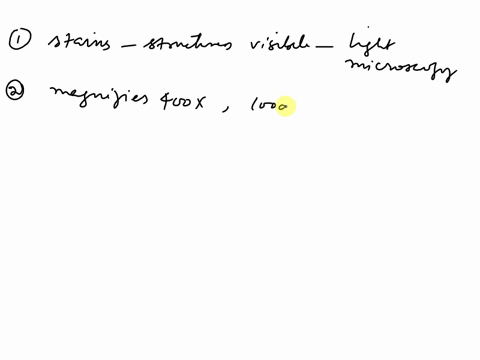 ① stains – structures visible – light
microscopy
② magnifies 400X, 1000